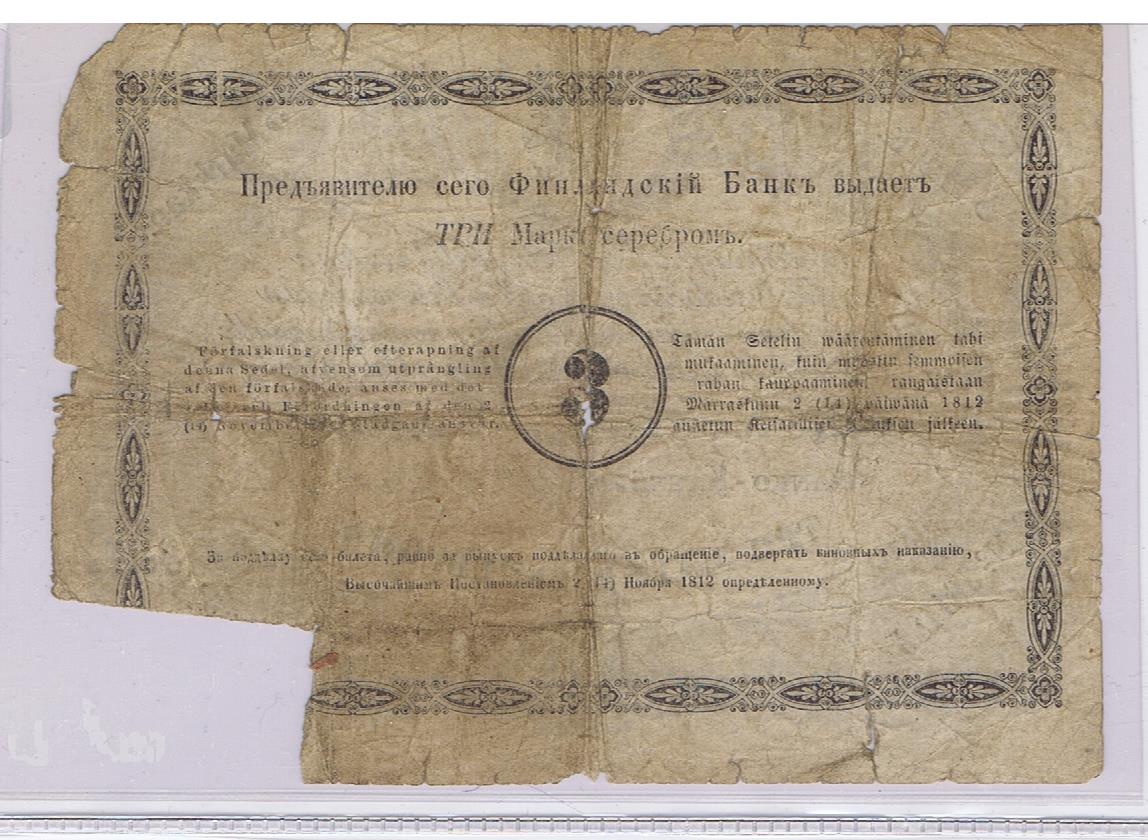 Предъявителю сего Финляндскій Банкъ выдаетъ
ТРИ Марки серебромъ.
Förfalskning eller efterapning af
denna Sedel, äfvensom utprångling
af den förfalskade, anses med det
Förordningen af den 2
(14) November stadgade ansvar.
3
Tämän Setelin wäärentäminen tahi
mukaaminen, kuin myöskin semmoisen
rahan kauppaaminen rangaistaan
Marraskuun 2 (14) päiwänä 1812
annetun Keisarillisen jälkeen.
За поддѣлку сего билета, равно за выпускъ поддѣланнаго въ обращеніе, подвергать виновныхъ наказанію,
Высочайшимъ Постановленіемъ 2 (14) Ноября 1812 опредѣленному.